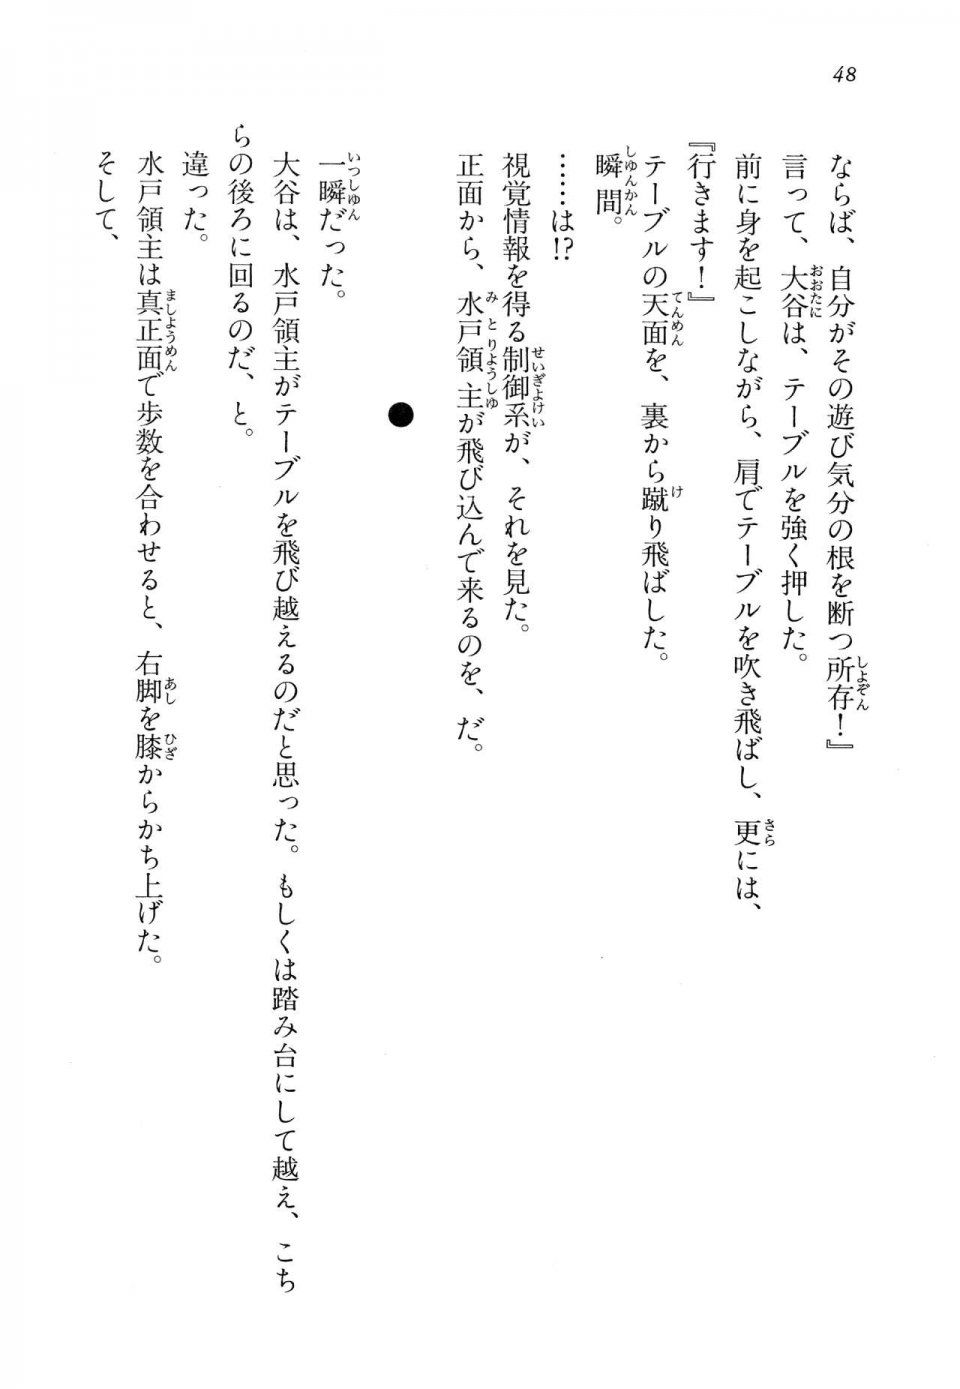 48
ならば、自分がその遊び気分の根を断つ所存！』
言って、大谷は、テーブルを強く押した。
前に身を起こしながら、肩でテーブルを吹き飛ばし、更には、
『行きます！』
テーブルの天面を、裏から蹴り飛ばした。
瞬間。
……は!?
視覚情報を得る制御系が、それを見た。
正面から、水戸領主が飛び込んで来るのを、だ。
●
一瞬だった。
大谷は、水戸領主がテーブルを飛び越えるのだと思った。もしくは踏み台にして越え、こち
らの後ろに回るのだ、と。
違った。
水戸領主は真正面で歩数を合わせると、右脚を膝からかち上げた。
そして、